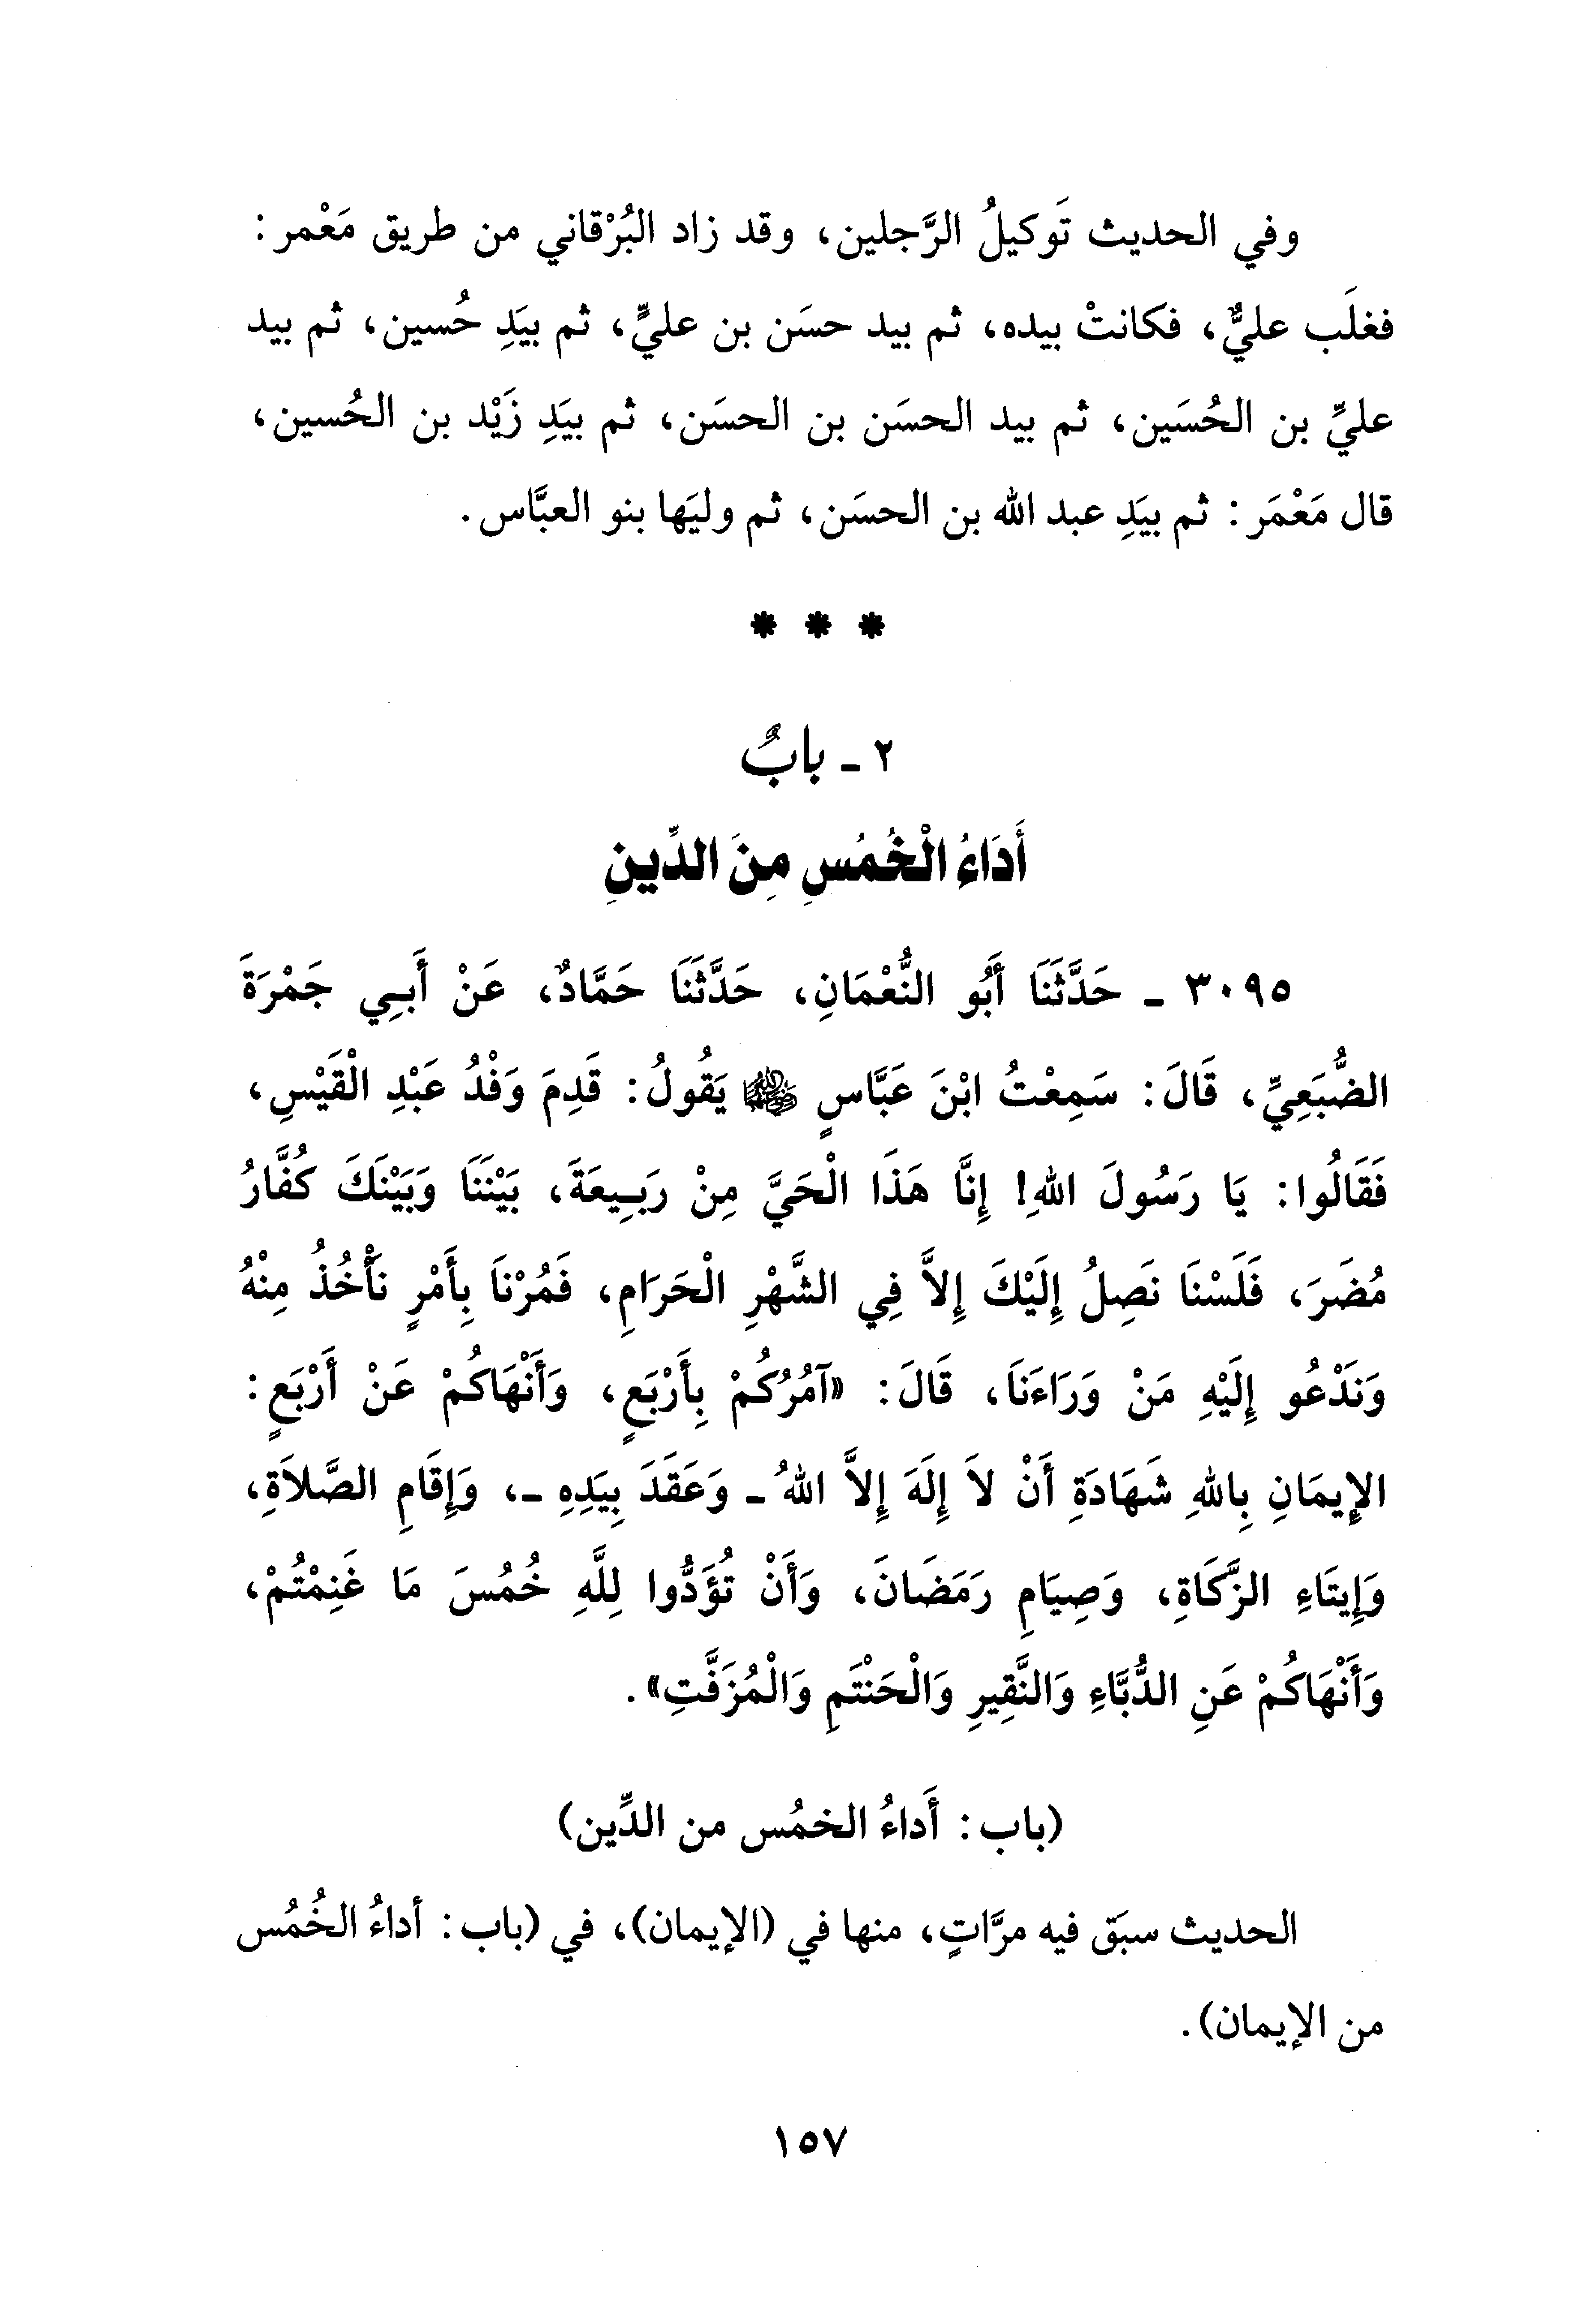 وفي الحديث تَوكيلُ الرَّجلين، وقد زاد البُرْقاني من طريق مَعْمر:
فغلَب عليٌّ، فكانتْ بيده، ثم بيد حسَن بن عليٍّ، ثم بيَدِ حُسين، ثم بيد
عليِّ بن الحُسَين، ثم بيد الحسَن بن الحسَن، ثم بيَدِ زَيْد بن الحُسين،
قال مَعْمَر: ثم بيَدِ عبد الله بن الحسَن، ثم وليَها بنو العبَّاس.
* * *
٢ ـ بابٌ
أَدَاءُ الْخُمُسِ مِنَ الدِّينِ
٣٠٩٥ ـ حَدَّثَنَا أَبُو النُّعْمَانِ، حَدَّثَنَا حَمَّادٌ، عَنْ أَبِي جَمْرَةَ
الضُّبَعِيِّ، قَالَ: سَمِعْتُ ابْنَ عَبَّاسٍ ﵄ يَقُولُ: قَدِمَ وَفْدُ عَبْدِ الْقَيْسِ،
فَقَالُوا: يَا رَسُولَ اللهِ! إِنَّا هَذَا الْحَيَّ مِنْ رَبِيعَةَ، بَيْنَنَا وَبَيْنَكَ كُفَّارُ
مُضَرَ، فَلَسْنَا نَصِلُ إِلَيْكَ إِلاَّ فِي الشَّهْرِ الْحَرَامِ، فَمُرْنَا بِأَمْرٍ نَأْخُذُ مِنْهُ
وَنَدْعُو إِلَيْهِ مَنْ وَرَاءَنَا، قَالَ: «آمُرُكُمْ بِأَرْبَعٍ، وَأَنْهَاكُمْ عَنْ أَرْبَعٍ:
الإِيمَانِ بِاللهِ شَهَادَةِ أَنْ لاَ إِلَهَ إِلاَّ اللهُ ـ وَعَقَدَ بِيَدِهِ ـ، وَإِقَامِ الصَّلاَةِ،
وَإِيتَاءِ الزَّكَاةِ، وَصِيَامِ رَمَضَانَ، وَأَنْ تُؤَدُّوا لِلَّهِ خُمُسَ مَا غَنِمْتُمْ،
وَأَنْهَاكُمْ عَنِ الدُّبَّاءِ وَالنَّقِيرِ وَالْحَنْتَمِ وَالْمُزَفَّتِ».
(باب: أَداءُ الخمُس من الدِّين)
الحديث سبَق فيه مرَّاتٍ، منها في (الإيمان)، في (باب: أداءُ الخُمُس
من الإيمان).
١٥٧